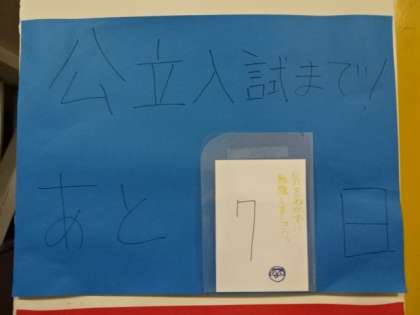 公立入試まで!
あと 7 日